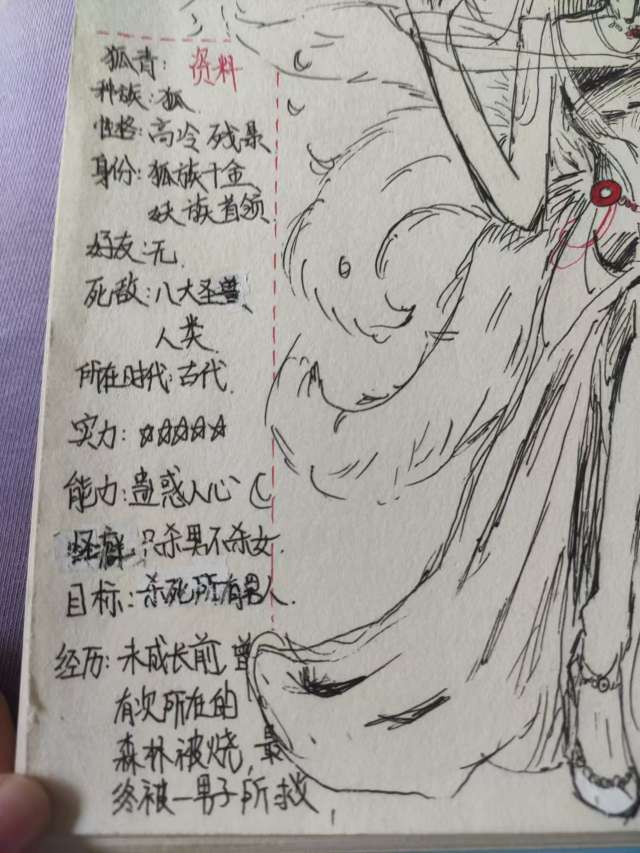 狐青: 资料
种族:狐
性格:高冷 残暴
身份:狐族千金
妖族首领
好友:无
死敌:八大圣兽、
人类
所在时代:古代
实力:☆☆☆☆☆
能力:蛊惑人心
怪癖:只杀男不杀女.
目标:杀死所有男人.
经历:未成长前,曾
有次所在的
森林被烧,最
终被一男子所救,